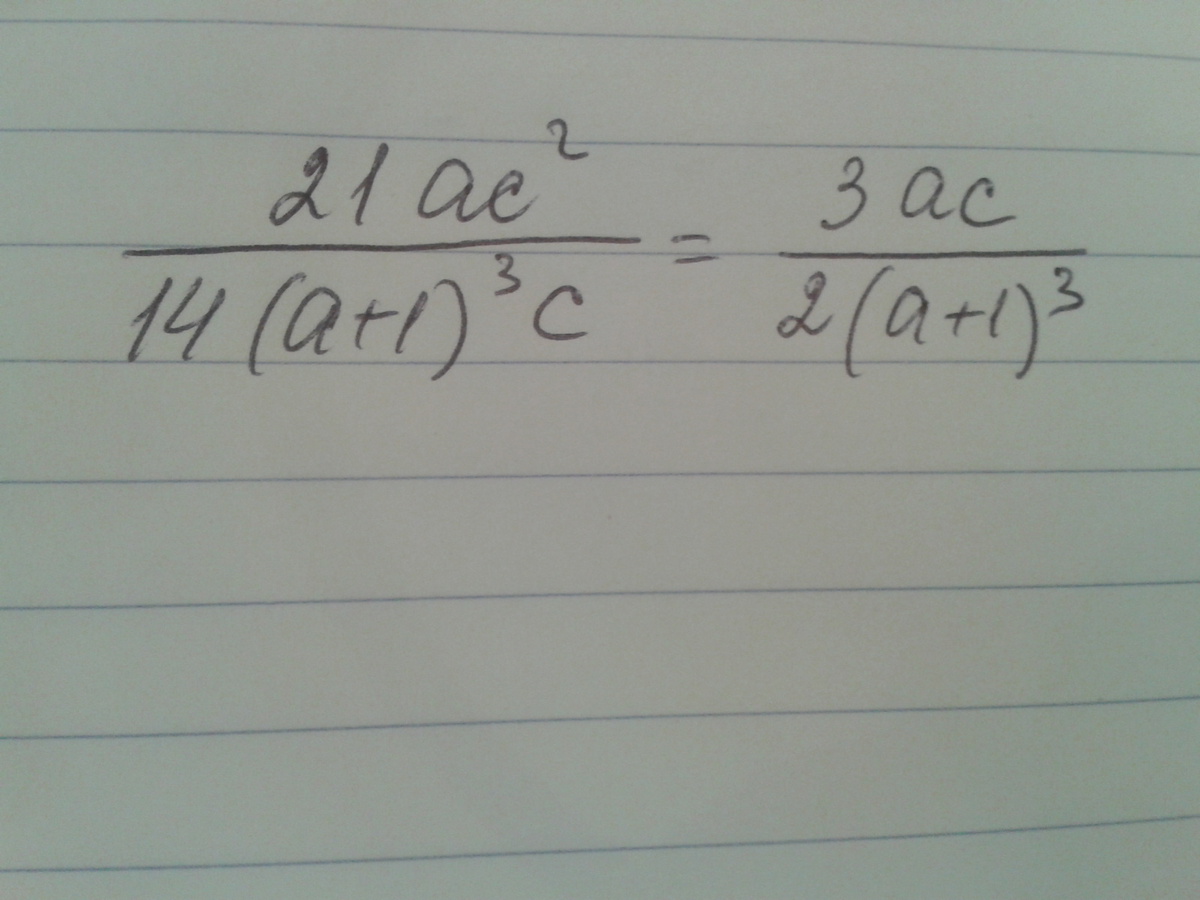 21 ac² / 14 (a+1)³ c = 3 ac / 2 (a+1)³